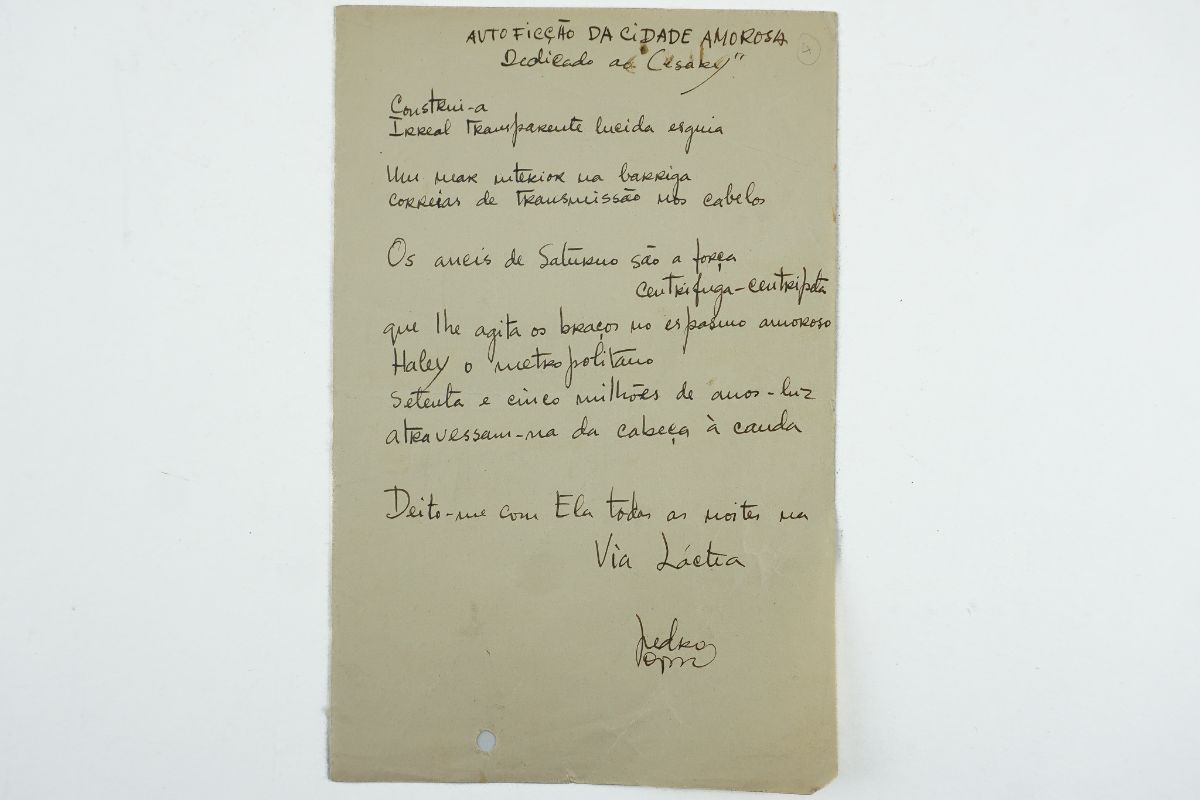 AUTOFICÇÃO DA CIDADE AMOROSA
4
Dedicado ao Cesariny"
Construi-a
Irreal transparente lucida esguia
Um mar interior na barriga
correias de transmissão nos cabelos
Os aneis de Saturno são a força
centrifuga-centripta
que lhe agita os braços no espasmo amoroso
Haley o metropolitano
Setenta e cinco milhões de anos-luz
atravessam-na da cabeça à cauda
Deito-me com Ela todas as noites na
Via Láctea
Pedro